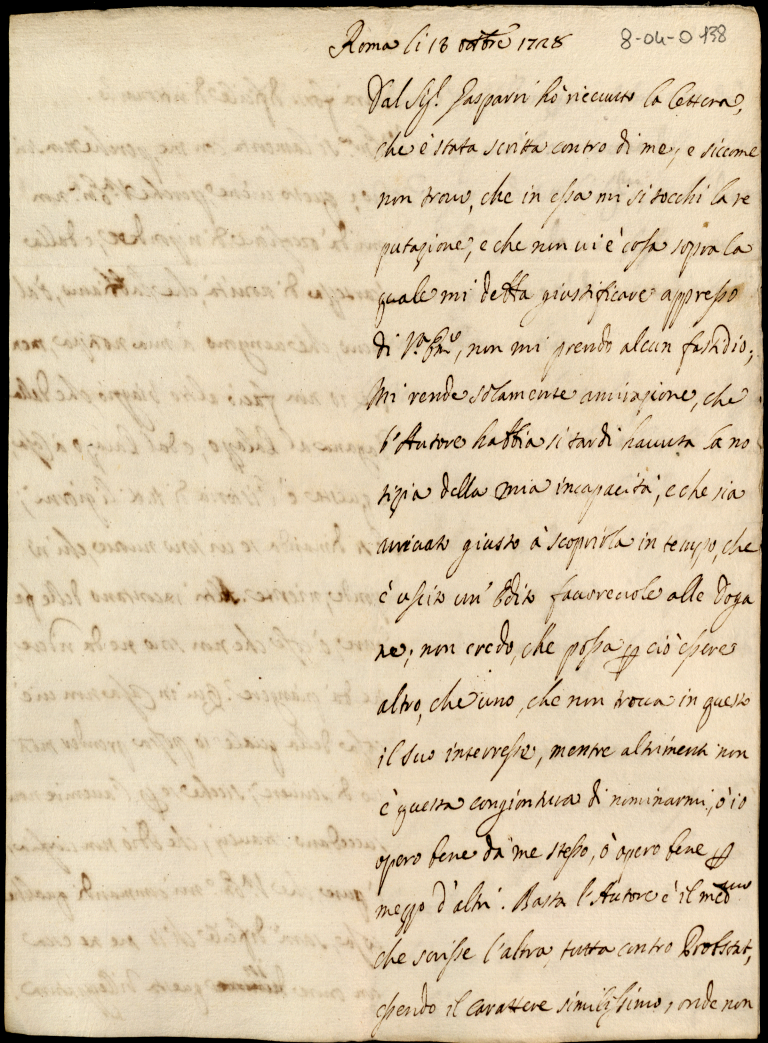 Roma li 18 octbre 1728
8-04-0 138
Dal Sig.r Gasparri hò riceuuto la lettera,
che è stata scritta contro di me, e siccome
non trouo, che in essa mi si tocchi la re
putazione, e che non ui è cosa sopra la
quale mi debba giustificare appresso
di V.a Em.a, non mi prendo alcun fastidio;
Mi rende solamente amirazione, che
l'Autore habbia sì tardi hauuta la no
tizia della mia incapacità, e che sia
arriuato giusto à scoprirla in tempo, che
è uscito un' Edito fauoreuole alle Doga
ne; non credo, che possa p ciò essere
altro, che uno, che non troua in questo
il suo interesse, mentre altrimenti non
è questa congiontura di nominarmi, ò io
opero bene da me stesso, ò opero bene p
mezzo d'altri. Basta l'Autore è il med.mo
che scrisse l'altra tutta contro Probstat,
essendo il carattere similissimo, onde non